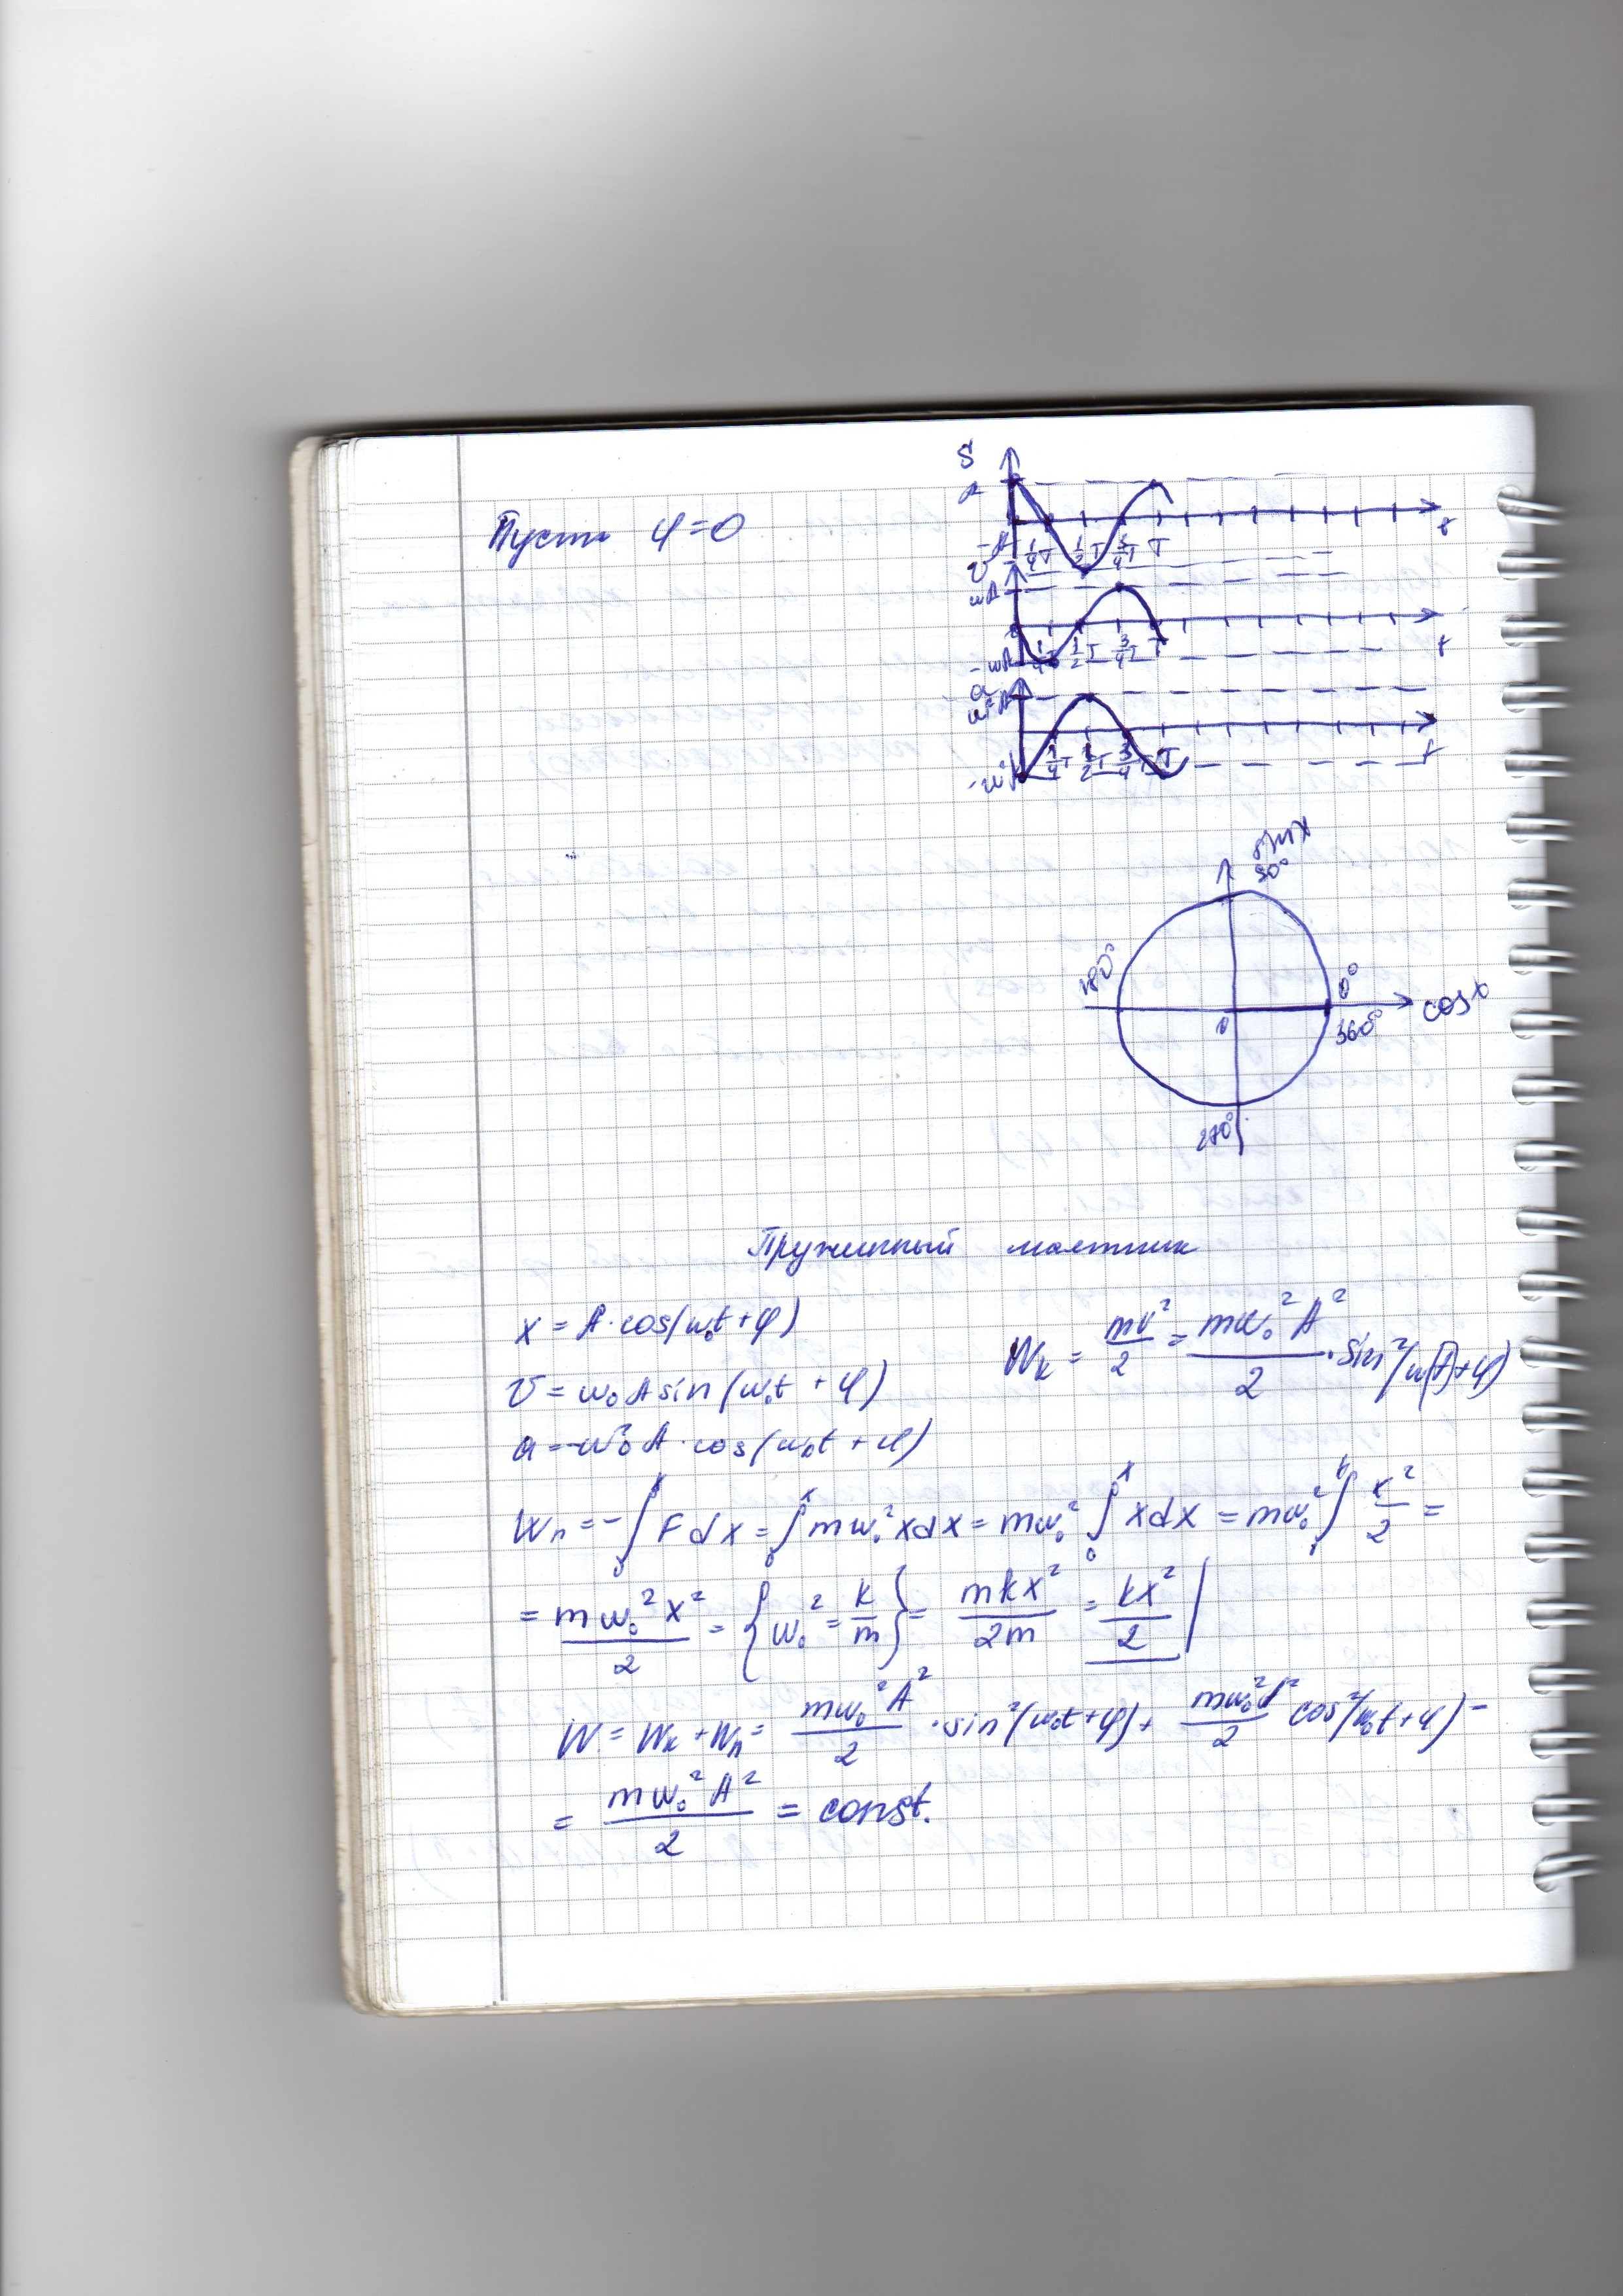 Пусть φ=0
S
A
-A
1/4 T 1/2 T 3/4 T T
t
v
ωA
-ωA
1/4 T 1/2 T 3/4 T T
t
a
ω²A
-ω²A
1/4 T 1/2 T 3/4 T T
t
sin x
90°
180°
0°
0
360°
cos x
270°
Пружинный маятник
x = A·cos(ω₀t+φ)
W_k = mv²/2 = mω₀²A²/2 · sin²(ω(t)+φ)
v = ω₀A sin(ω₀t+φ)
a = -ω₀²A·cos(ω₀t+φ)
W_п = -∫₀ˣ Fdx = ∫₀ˣ mω₀²xdx = mω₀² ∫₀ˣ xdx = mω₀² ∫ x²/2 =
= mω₀²x²/2 = {ω₀² = k/m} = mkx²/2m = kx²/2 |
W = W_k + W_п = mω₀²A²/2 · sin²(ω₀t+φ) + mω₀²A²/2 cos²(ω₀t+φ) =
= mω₀²A²/2 = const.